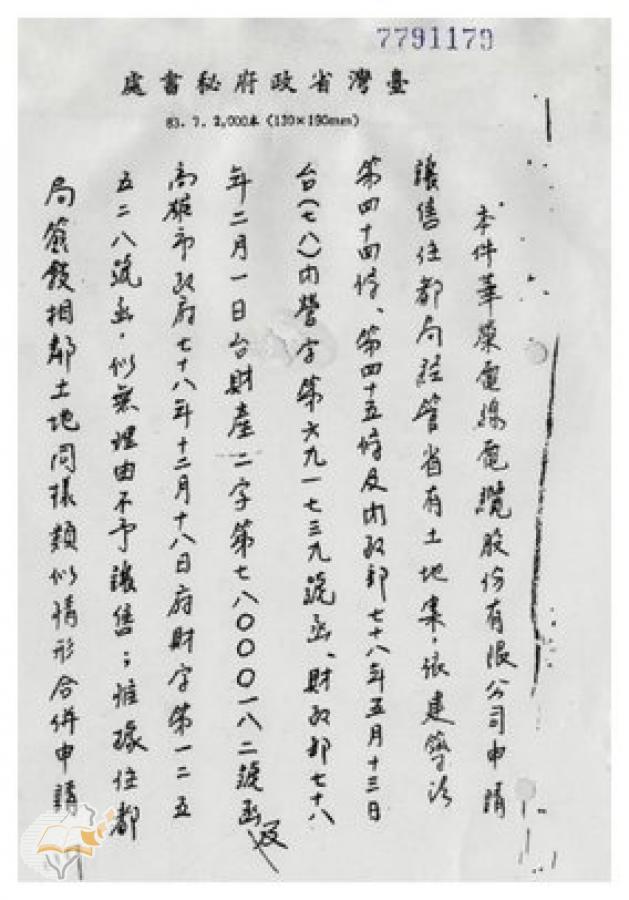 7791179
臺灣省政府秘書處
83.7.2,000本（130×190mm）
本件華榮電線電纜股份有限公司申請
讓售住都局經管省有土地案，依建築法
第四十四條、第四十五條及內政部七十八年五月十三日
台（七八）內營字第六九一七三九號函、財政部七十八
年二月一日台財產二字第七八〇〇〇一八二號函及
高雄市政府七十八年十二月十八日府財字第一二五
五二八號函，似無理由不予讓售；惟據住都
局簽餘相鄰土地同樣類似情形合併申請